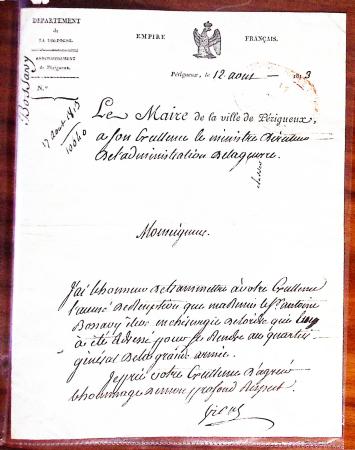 DÉPARTEMENT
de
LA DORDOGNE.
ARRONDISSEMENT
de Périgueux.
N.°
Bossavy
17 aout 1813
10640
EMPIRE FRANÇAIS.
Périgueux, le 12 aout 1813
Le Maire de la ville de Périgueux,
a son Excellence le ministre Directeur
de l'administration de la guerre.
Monseigneur
J'ai l'honneur de transmettre à votre Excellence
l'accusé de Réception que m'a remis le Sr. antoine
Bossavy élève en chirurgie de lordre qui luy
a été adressé pour se rendre au quartier
général de la grande armée.
Je prie votre Excellence d'agréer
l'hommage de mon profond Respect.